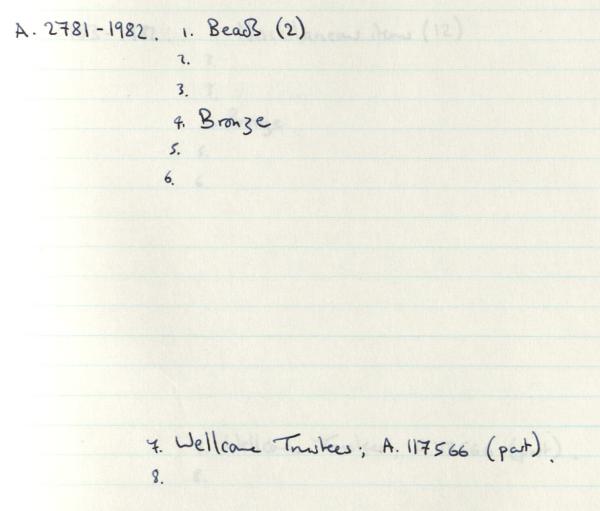 A. 2781-1982. 1. Beads (2)
2.
3.
4. Bronze
5.
6.
7. Wellcome Trustees; A. 117566 (part).
8.